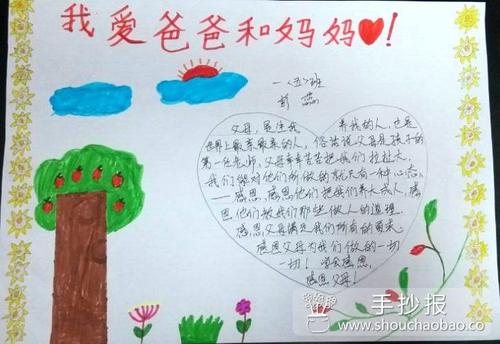 我爱爸爸和妈妈❤!
一〈五〉班
父母，是生我 养我的人，也是
世界上最亲最亲的人，俗话说父母是孩子的
第一任老师，父母辛辛苦苦把我们拉扯大，
我们能对他们所做的就只有一种心态，
——感恩，感恩他们把我们养大成人，感
恩他们教我们那些做人的道理，
感恩父母满足我们所有的要求，
感恩父母为我们做的一切
一切！学会感恩，
感恩父母！
手抄报
www.shouchaobao.co